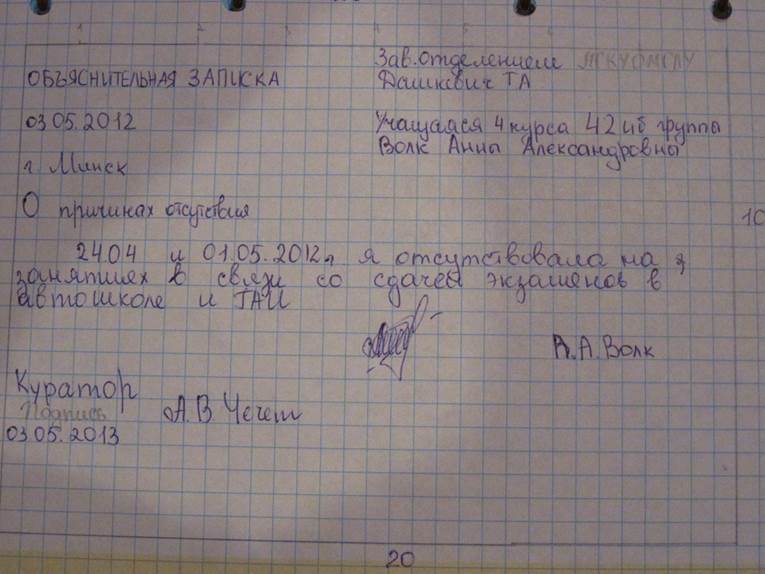 Зав. отделением
ОБЪЯСНИТЕЛЬНАЯ ЗАПИСКА
Дашкевич ТА
03 05. 2012
Учащаяся 4 курса 42 иб группа
Волк Анны Александровны
г. Минск
О причинах отсутствия
10
24.04 и 01.05.2012г я отсутствовала на
занятиях в связи со сдачей экзаменов в
автошколе и ГАИ
А.А. Волк
Куратор
Подпись
А.В Чечет
03.05. 2013
20